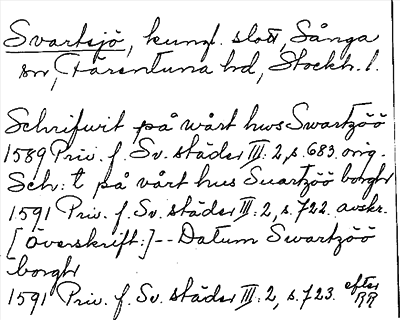 Svartsjö, kungl. slott, Sånga
sn, Färentuna hd, Stockh. l.
Schrifwit på wårt hws Swartzöö
1589 Priv. f. Sv. städer III: 2, s. 683. orig.
Sch: t på vårt hus Suartzöö borghr
1591 Priv. f. Sv. städer III: 2, s. 722. avskr.
[Överskrift:] -- Datum Swartzöö
borghr
1591 Priv. f. Sv. städer III: 2, s. 723. efter
RR